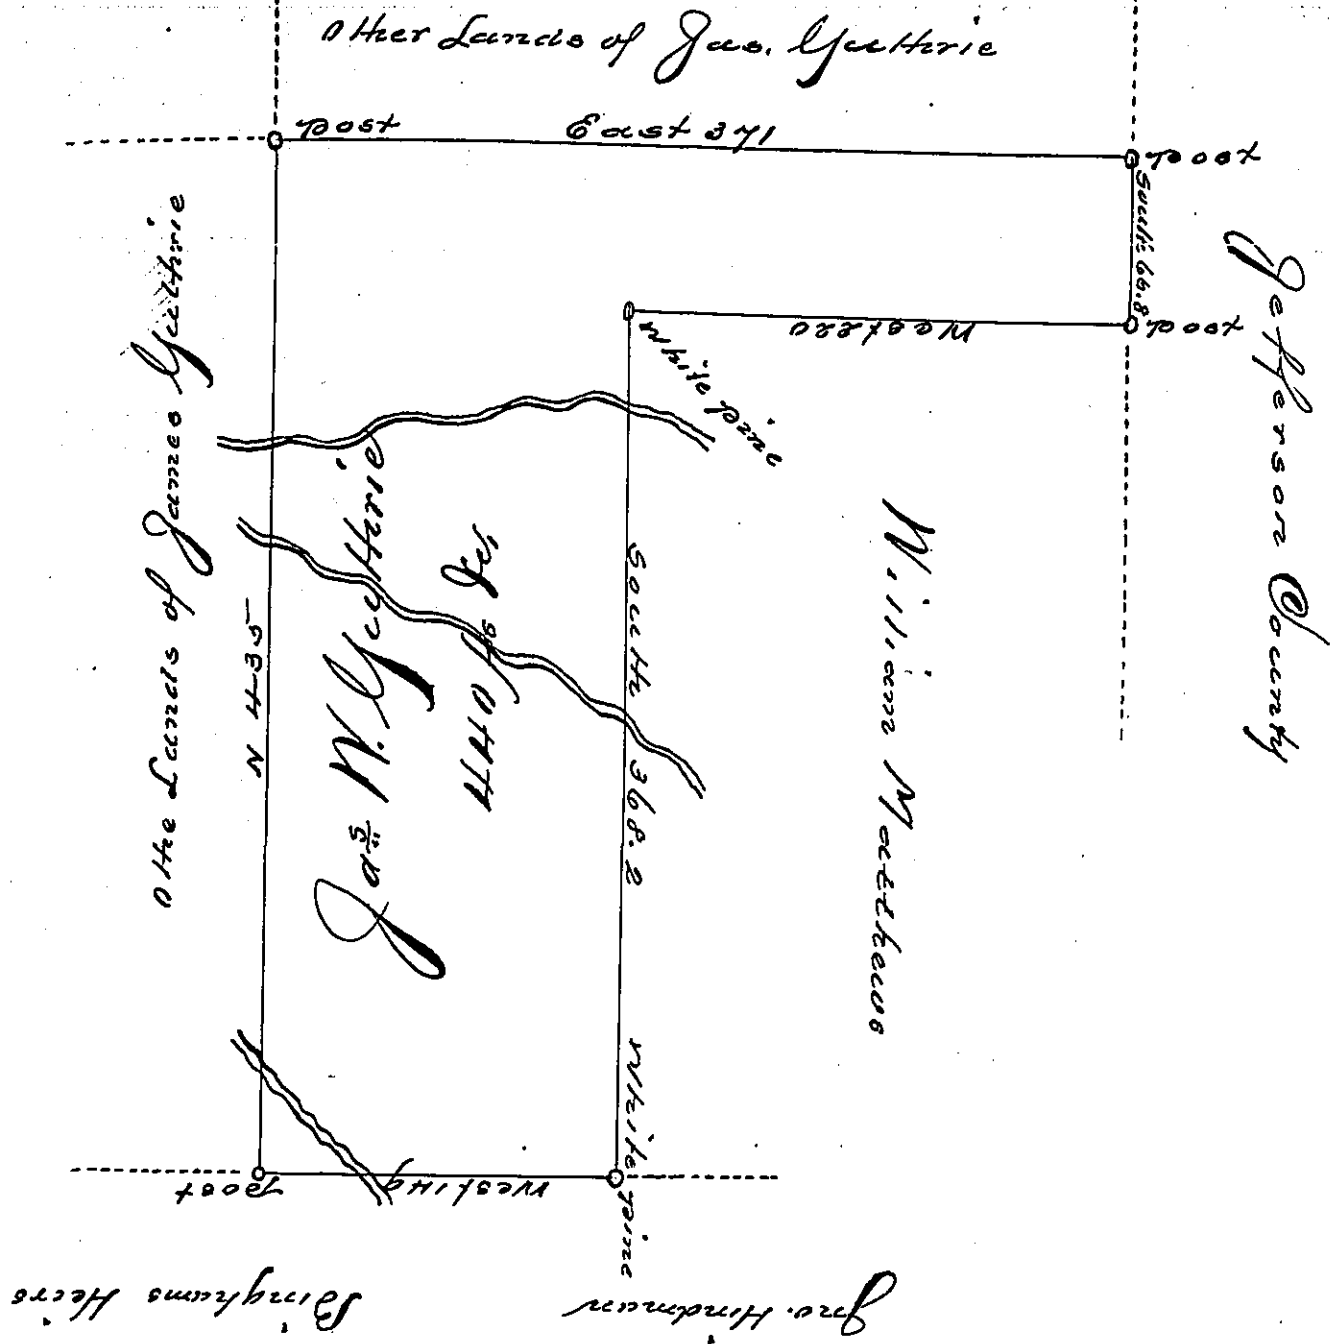 Other Lands of Jas. Guthrie
post
East 371
post
South 66.8
post
West 220
White pine
Jefferson County
Othe Lands of James Guthrie
N 435
Jas W. Guthrie
440 As
South 368.2
William Matthews
White Pine
West 149
post
Jno. Hindman
Binghams Heirs